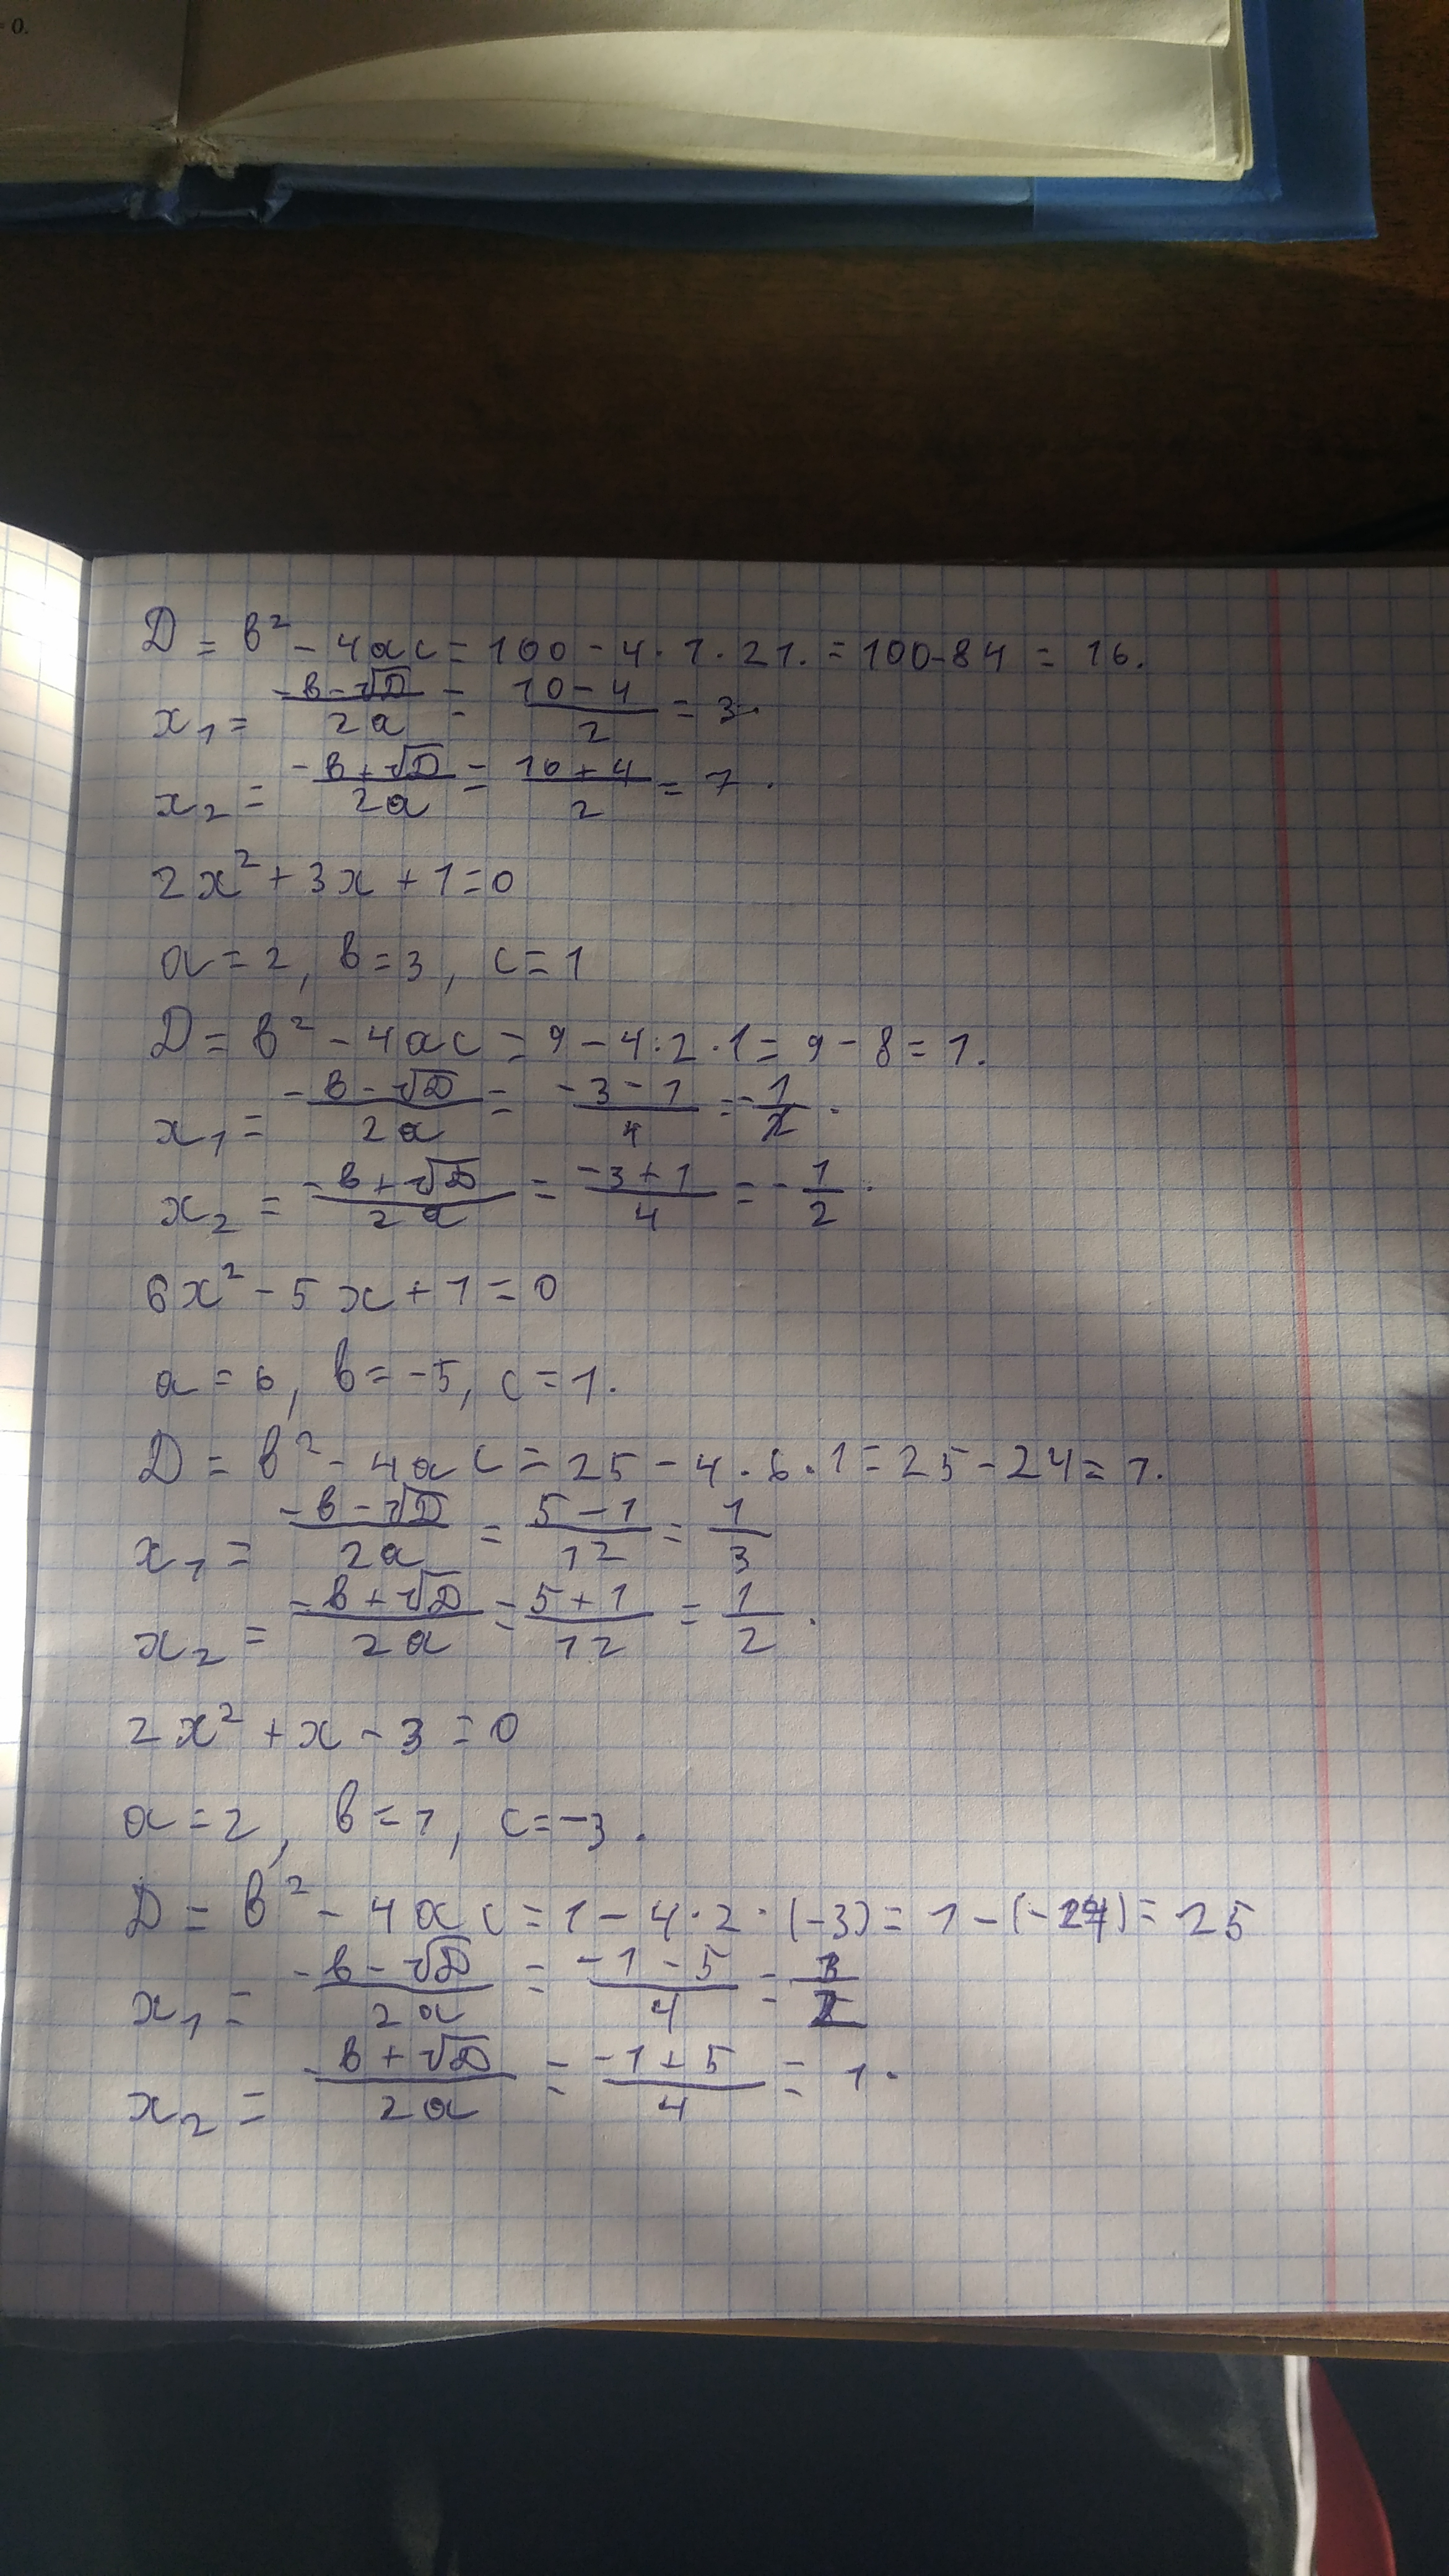 = 0.
D = b² - 4ac = 100 - 4 · 1 · 21. = 100 - 84 = 16.
x₁ = (-b - √D)/(2a) = (10 - 4)/2 = 3.
x₂ = (-b + √D)/(2a) = (10 + 4)/2 = 7.
2x² + 3x + 1 = 0
a = 2, b = 3, c = 1
D = b² - 4ac = 9 - 4 · 2 · 1 = 9 - 8 = 1.
x₁ = (-b - √D)/(2a) = (-3 - 1)/4 = -1
x₂ = (-b + √D)/(2a) = (-3 + 1)/4 = -1/2.
6x² - 5x + 1 = 0
a = 6, b = -5, c = 1.
D = b² - 4ac = 25 - 4 · 6 · 1 = 25 - 24 = 1.
x₁ = (-b - √D)/(2a) = (5 - 1)/12 = 1/3
x₂ = (-b + √D)/(2a) = (5 + 1)/12 = 1/2.
2x² + x - 3 = 0
a = 2, b = 1, c = -3.
D = b² - 4ac = 1 - 4 · 2 · (-3) = 1 - (-24) = 25
x₁ = (-b - √D)/(2a) = (-1 - 5)/4 = 3/2
x₂ = (-b + √D)/(2a) = (-1 + 5)/4 = 1.